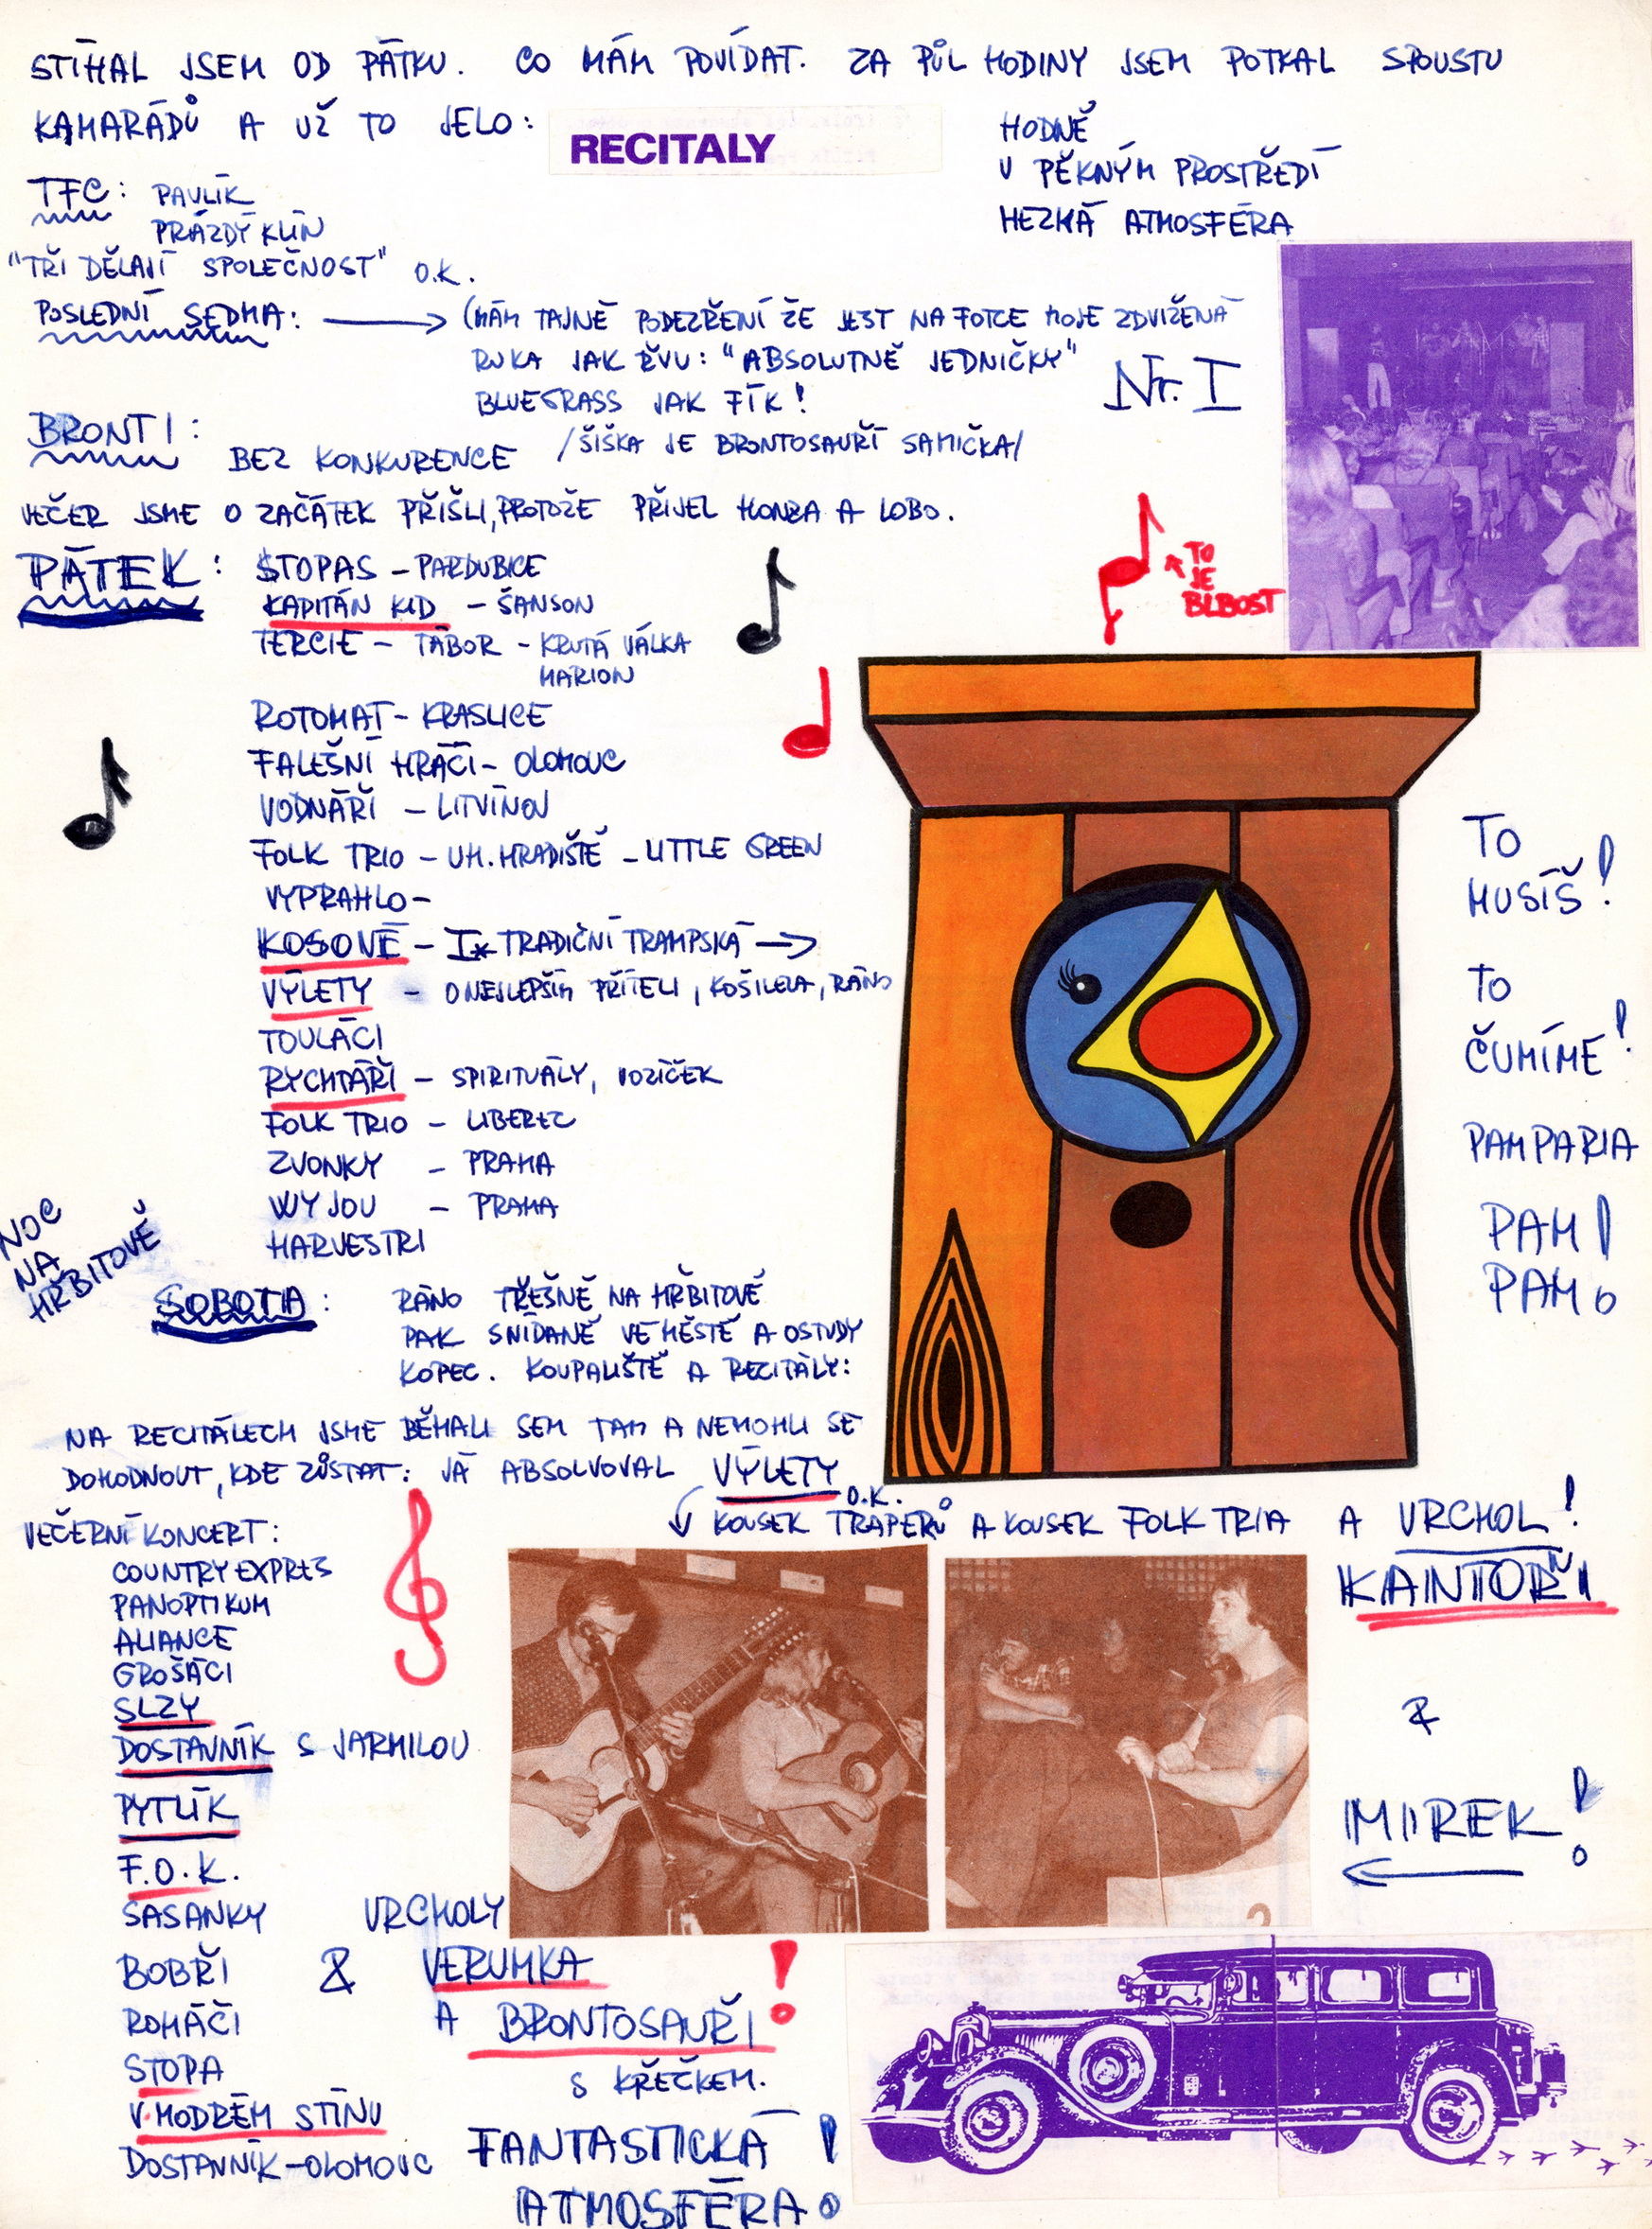 STÍHAL JSEM OD PÁTKU. CO MÁM POVÍDAT. ZA PŮL HODINY JSEM POTKAL SPOUSTU
KAMARÁDŮ A UŽ TO JELO:
RECITALY
HODNĚ
V PĚKNÝM PROSTŘEDÍ
HEZKÁ ATMOSFÉRA
TFC: PAVLÍK
PRÁZDÝ KLÍN
"TŘI DĚLAJÍ SPOLEČNOST" O.K.
POSLEDNÍ SEDMA: → (MÁM TAJNÉ PODEZŘENÍ ŽE JEST NA FOTCE MOJE ZDVIŽENÁ
RUKA JAK ŘVU: "ABSOLUTNĚ JEDNIČKY"
BLUEGRASS JAK FÍK!
Nr. I
BRONTI:
BEZ KONKURENCE /ŠIŠKA JE BRONTOSAUŘÍ SAMIČKA/
VEČER JSME O ZAČÁTEK PŘIŠLI, PROTOŽE PŘIJEL HONZA A LOBO.
PÁTEK: STOPAS - PARDUBICE
KAPITÁN KID - ŠANSON
TERCIE - TÁBOR - KRUTÁ VÁLKA
MARION
TO
JE
BLBOST
ROTOMAT - KRASLICE
FALEŠNÍ HRÁČI - OLOMOUC
VODNÁŘI - LITVÍNOV
FOLK TRIO - UH. HRADIŠTĚ - LITTLE GREEN
VYPRAHLO -
KOSOVÉ - I* TRADIČNÍ TRAMPSKÁ →
VÝLETY - O NEJLEPŠÍM PŘÍTELI, KOŠILELA, RÁNO
TOULÁCI
RYCHTÁŘI - SPIRITUÁLY, VOZÍČEK
FOLK TRIO - LIBEREC
ZVONKY - PRAHA
WYJOU - PRAHA
HARVESTRI
TO
MUSÍŠ!
TO
ČUMÍME!
PAMPARIA
PAM!
PAM
NOC
NA
HŘBITOVĚ
SOBOTA: RÁNO TŘEŠNĚ NA HŘBITOVĚ
PAK SNÍDANĚ VE MĚSTĚ A OSTUDY
KOPEC. KOUPALIŠTĚ A RECITÁLY:
NA RECITÁLECH JSME BĚHALI SEM TAM A NEMOHLI SE
DOHODNOUT, KDE ZŮSTAT: JÁ ABSOLVOVAL VÝLETY O.K.
KOUSEK TRAPERŮ A KOUSEK FOLK TRIA A VRCHOL!
KANTOŘI
&
MIREK!
VEČERNÍ KONCERT:
COUNTRY EXPRES
PANOPTIKUM
ALIANCE
GROŠÁCI
SLZY
DOSTAVNÍK S JARMILOU
PYTLÍK
F.O.K.
SASANKY
BOBŘI
ROHÁČI
STOPA
V MODRÉM STÍNU
DOSTAVNÍK - OLOMOUC
VRCHOLY
& VERUMKA
A BRONTOSAUŘI!
S KŘEČKEM.
FANTASTICKÁ
ATMOSFÉRA!